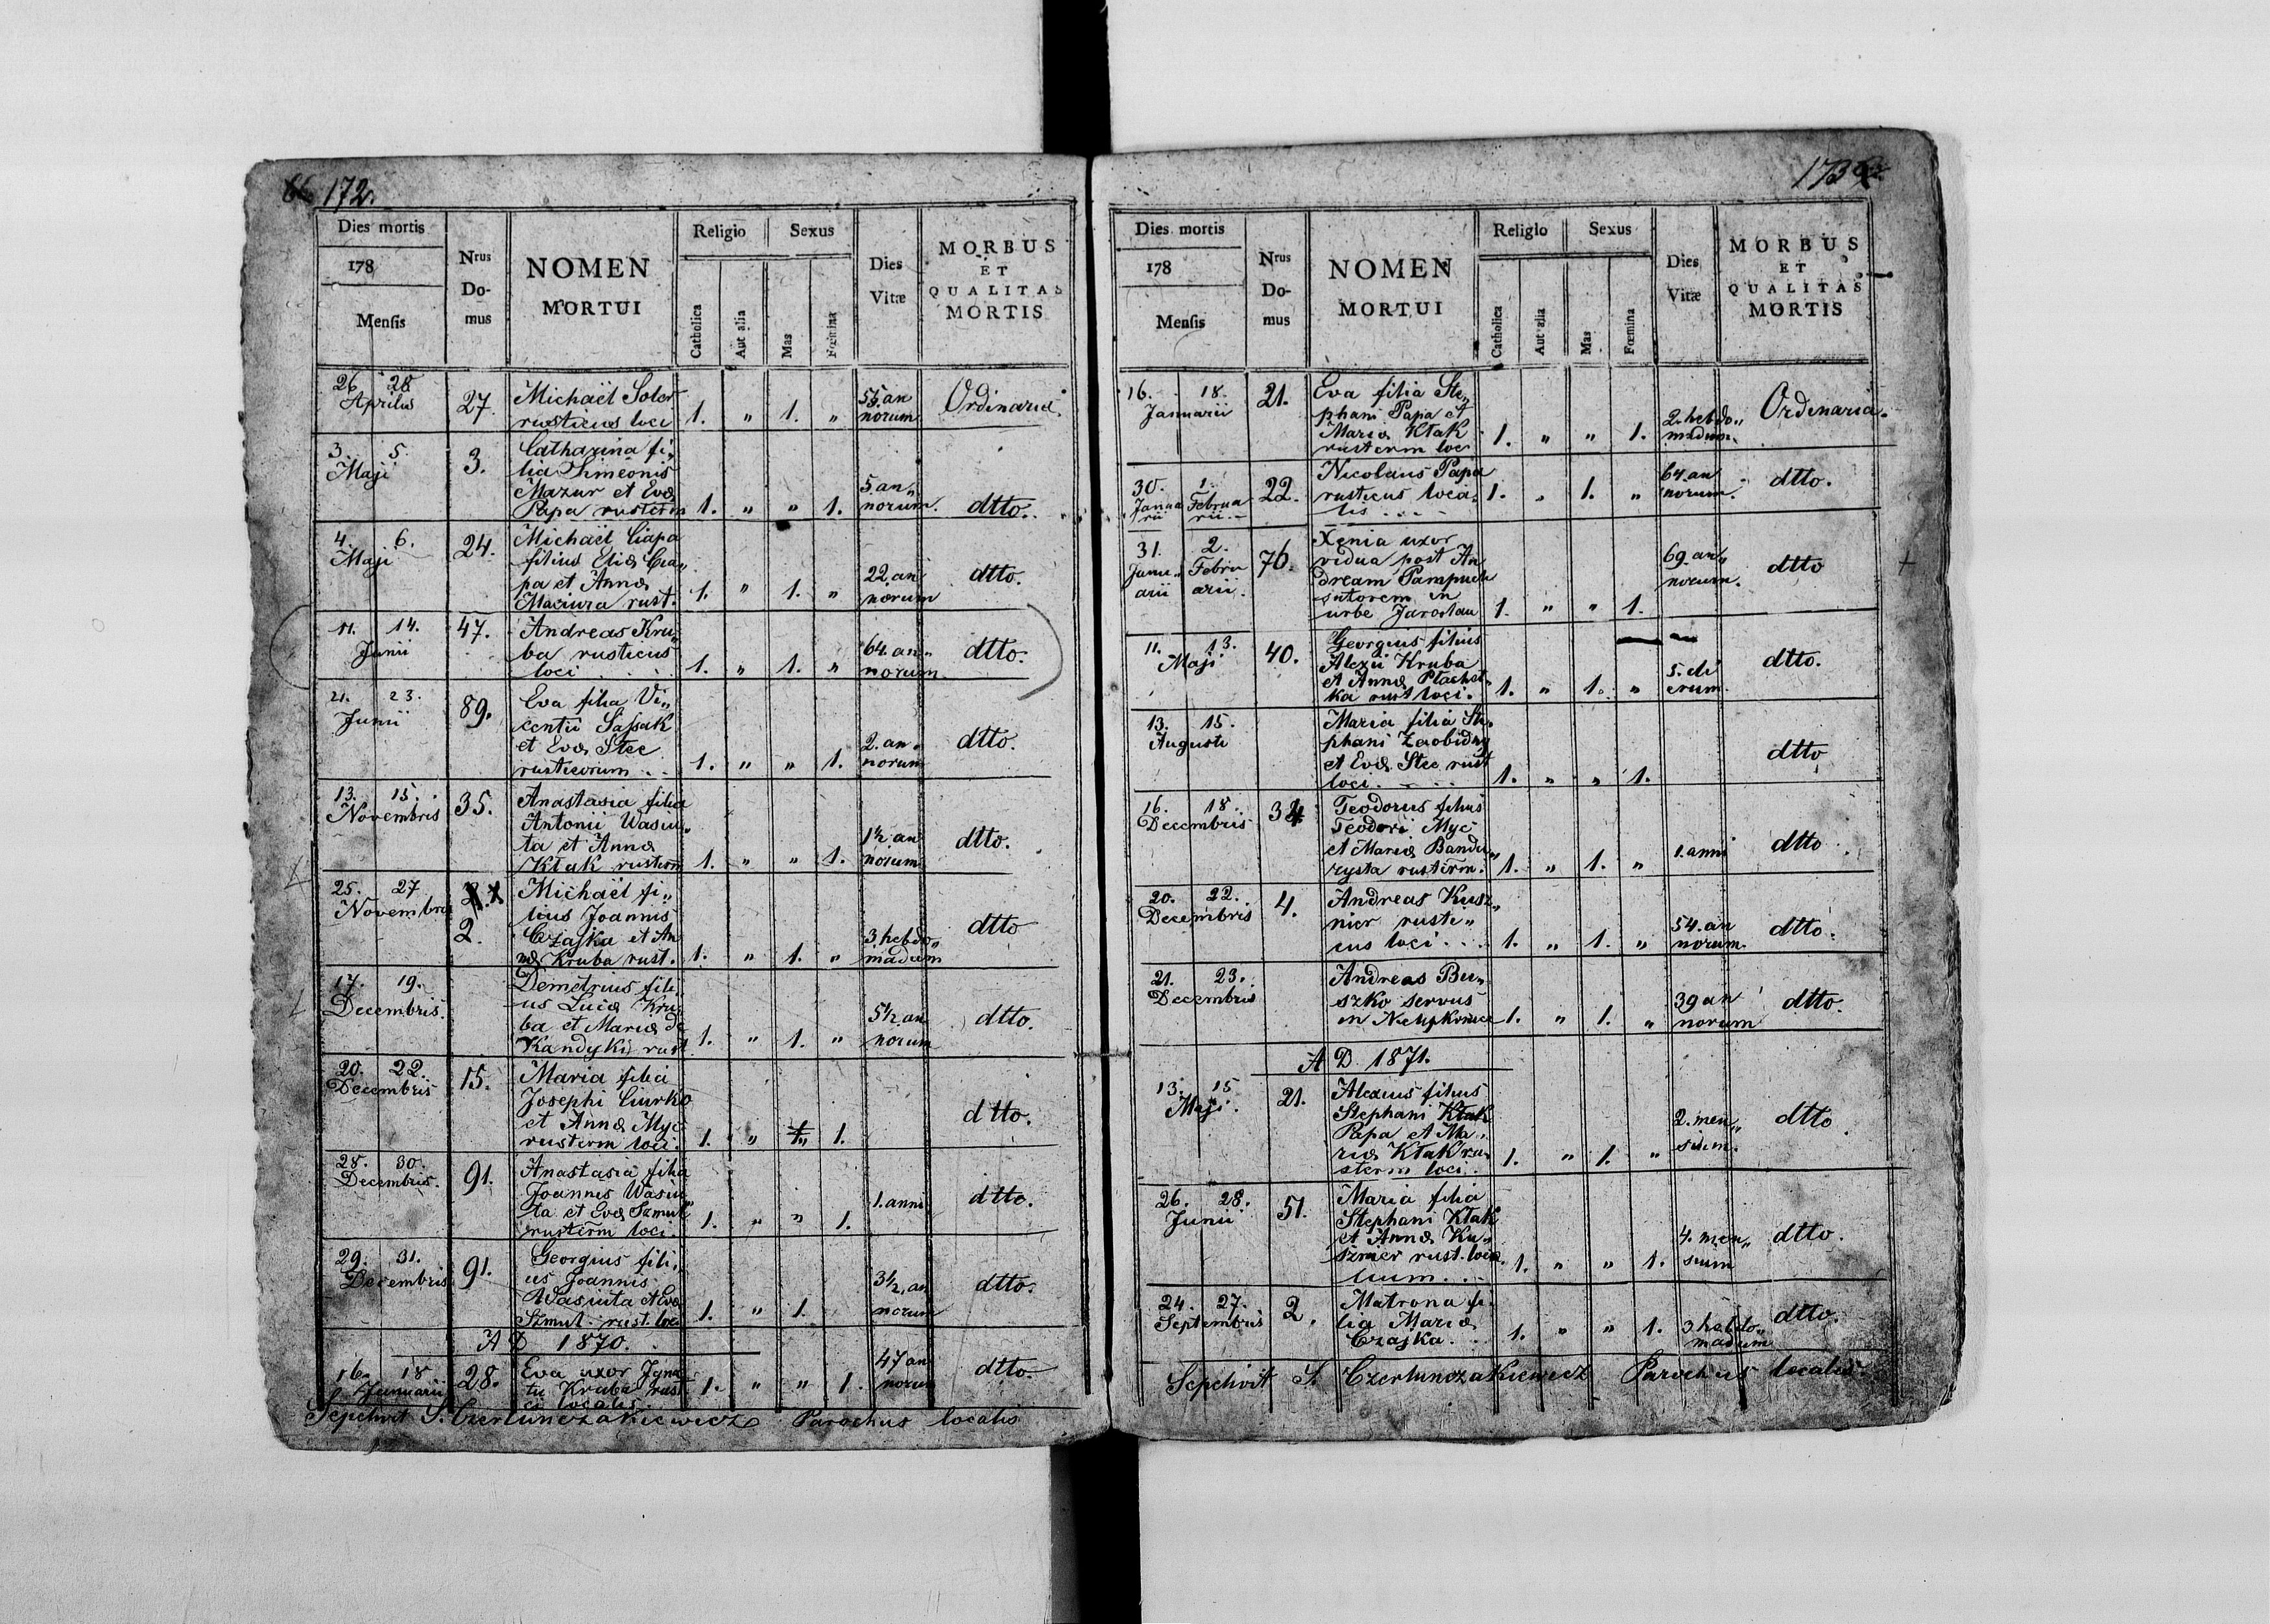 172.
Dies mortis
178
Mensis
Nrus
Do-
mus
NOMEN
MORTUI
Religio
Catholica
Aut alia
Sexus
Mas
Fœmina
Dies
Vitæ
MORBUS
ET
QUALITAS
MORTIS
26. 28.
Aprilis
27.
Michaël Soler
rusticus loci
1. " 1. "
an
norum
Ordinaria.
3. 5.
Maji
3.
Catharina fi„
lia Simeonis
Mazur et Evæ
Papa rusticrm
1. " " 1.
5. an„
norum.
dtto.
4. 6.
Maji
24.
Michaël Ciapa
filius Eliæ Cia„
pa et Annæ
Maciura rust.
1. " 1. "
22. an
norum
dtto.
11. 14.
Junii
47.
Andreas Kru„
ba rusticus
loci
1. " 1. "
64. an„
norum.
dtto.
21. 23.
Junii
89.
Eva filia Vi„
centii
et Evæ Stec
rusticorum . .
1. " " 1.
2. an„
norum
dtto.
13. 15.
Novembris
35.
Anastasia filia
Antonii Wasiu„
ta et Annæ
Kłak rusticrm
1. " " 1.
1½ an
norum
dtto.
25. 27
Novembris
2.
Michaël fi„
lius Joannis
Czajka et An
næ Kruba rust.
1. " 1. "
3. hebdo„
madum
dtto
17. 19.
Decembris.
Demetrius fili„
us Lucæ Kru„
ba et Mariæ de
Kandyki rust
1. " 1. "
5½ an
norum
dtto.
20. 22.
Decembris
15.
Maria filia
Josephi Ciurko
et Annæ Myc
rusticrm loci.
1. " " 1.
dtto.
28. 30.
Decembris.
91.
Anastasia filia
Joannis Wasiu„
ta et Evæ Szmul
rusticrm loci.
1. " " 1.
1. anni
dtto.
29. 31.
Decembris
91.
Georgius fili„
us Joannis
Wasiuta et Evæ
Szmul. rust. loci
1. " 1.
3½ an
norum
dtto.
A D 1870.
16. 18
Januarii
28.
Eva uxor Igna
tii Kruba rust
ci localis.
1. " " 1.
47 an
norum
dtto.
Sepelivit S. Czerlunczakiewicz Parochus localis
173
Dies mortis
178
Mensis
Nrus
Do-
mus
NOMEN
MORTUI
Religio
Catholica
Aut alia
Sexus
Mas
Fœmina
Dies
Vitæ
MORBUS
ET
QUALITAS
MORTIS
16. 18.
Januarii
21.
Eva filia Ste„
phani Papa et
Mariæ Kłak
rusticrm loci
1. " " 1.
2. hebdo„
madum.
Ordinaria.
30. 1.
Janua Februa
rii rii.
22.
Nicolaus Papa
rusticus loca„
lis . . . .
1. " 1. "
64. an
norum.
dtto.
31. 2.
Janu„ Febru
arii arii.
76.
Xenia uxor
vidua post An
dream Pampuch
sutorem in
urbe Jaroslau
1. " " 1.
69. an„
norum.
dtto
11. 13.
Maji
40.
Georgius filius
Alexii Kruba
et Annæ
ka rust loci.
1. " 1. "
5. di
erum.
dtto.
13. 15.
Augusti
Maria filia Ste„
phani Zaobidny
et Evæ Stec rust
loci. . . . .
1. " " 1.
dtto
16. 18.
Decembris
34
Teodorus filius
Teodori Myc
et Mariæ Bandu„
rysta rusticrm.
1. " 1. "
1. anni
dtto
20. 22.
Decembris
4.
Andreas Kusz„
nier rusti„
cus loci . . .
1. " 1. "
54. an
norum.
dtto.
21. 23.
Decembris
Andreas Bu„
szko servus
in
1. " 1. "
39 an
norum
dtto.
A D. 1871.
13. 15
Maji.
21.
Alexius filius
Stephani Kłak
Papa et Ma„
riæ Kłak ru„
sticrm loci.
1. " 1. "
2. men„
sium.
dtto
26. 28.
Junii
51.
Maria filia
Stephani Kłak
et Annæ Ku„
sznier rust. loca
lium. . .
1. " " 1.
4. men„
sium
dtto.
24. 27.
Septembris
2.
Matrona fi„
lia Mariæ
Czajka. . .
1. " " 1.
3 hebdo„
madum
dtto.
Sepelivit S. Czerlunczakiewicz Parochus localis